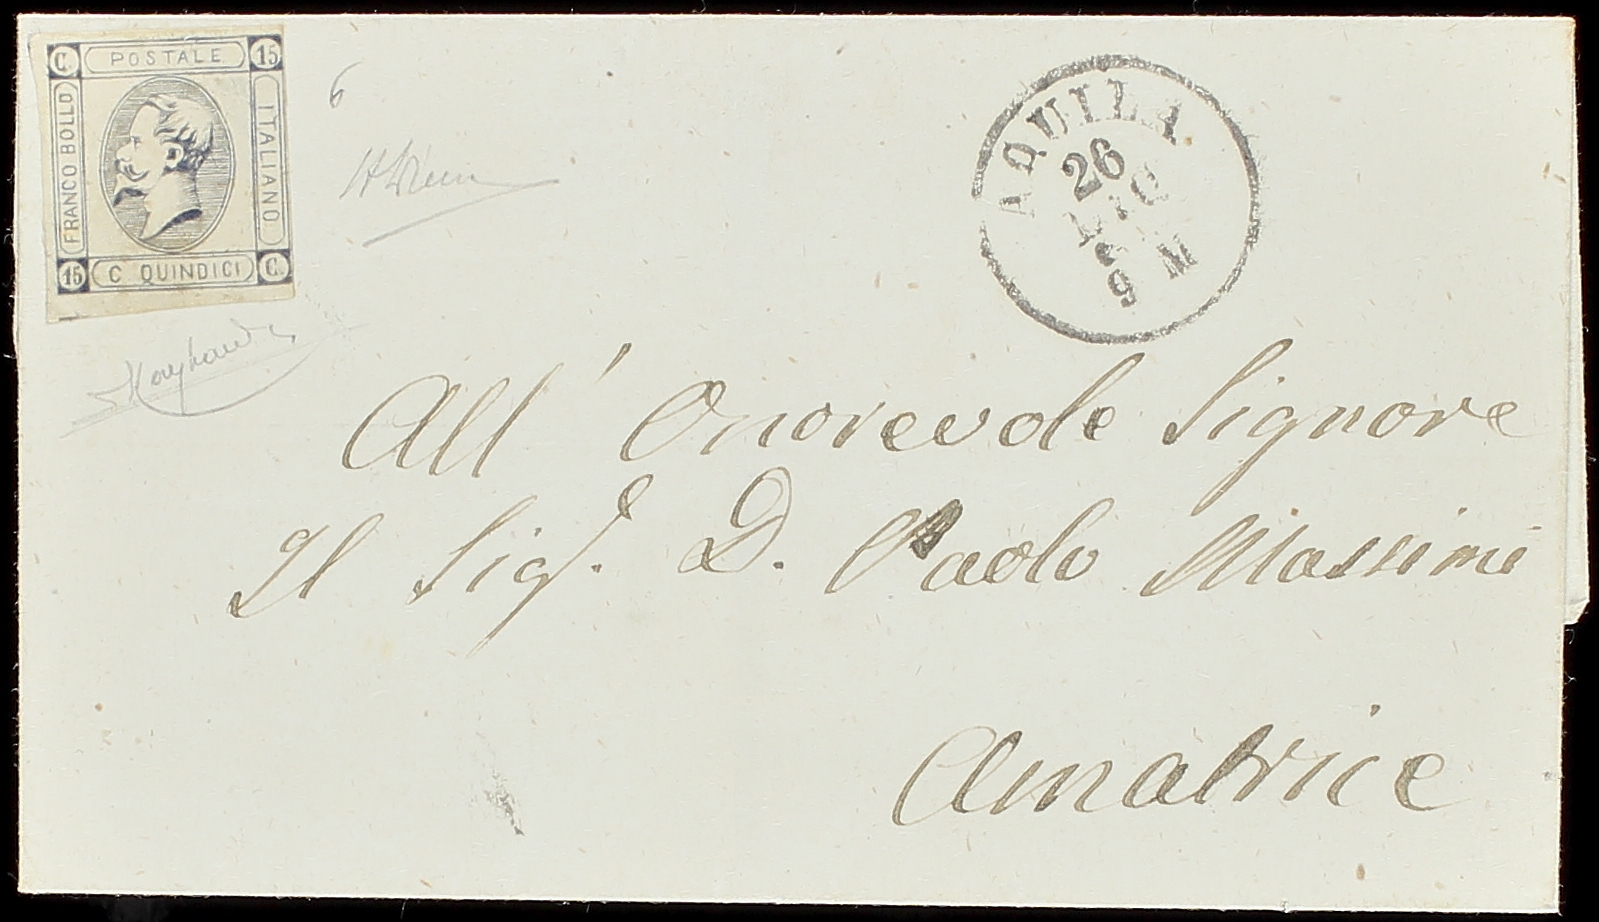 C. POSTALE 15
FRANCO BOLLO
ITALIANO
15 C QUINDICI C.
6
AQUILA
26
DIC
9 M
All' Onorevole Signore
Il Sigr. D. Paolo Massimi
Amatrice